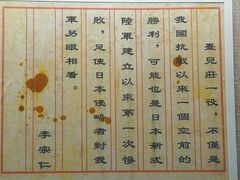 臺兒莊一役,不僅是
我國抗戰以來一個空前的
勝利,可能也是日本新式
陸軍建立以來第一次慘
敗,足使日本侵略者對我
軍另眼相看。
李宗仁